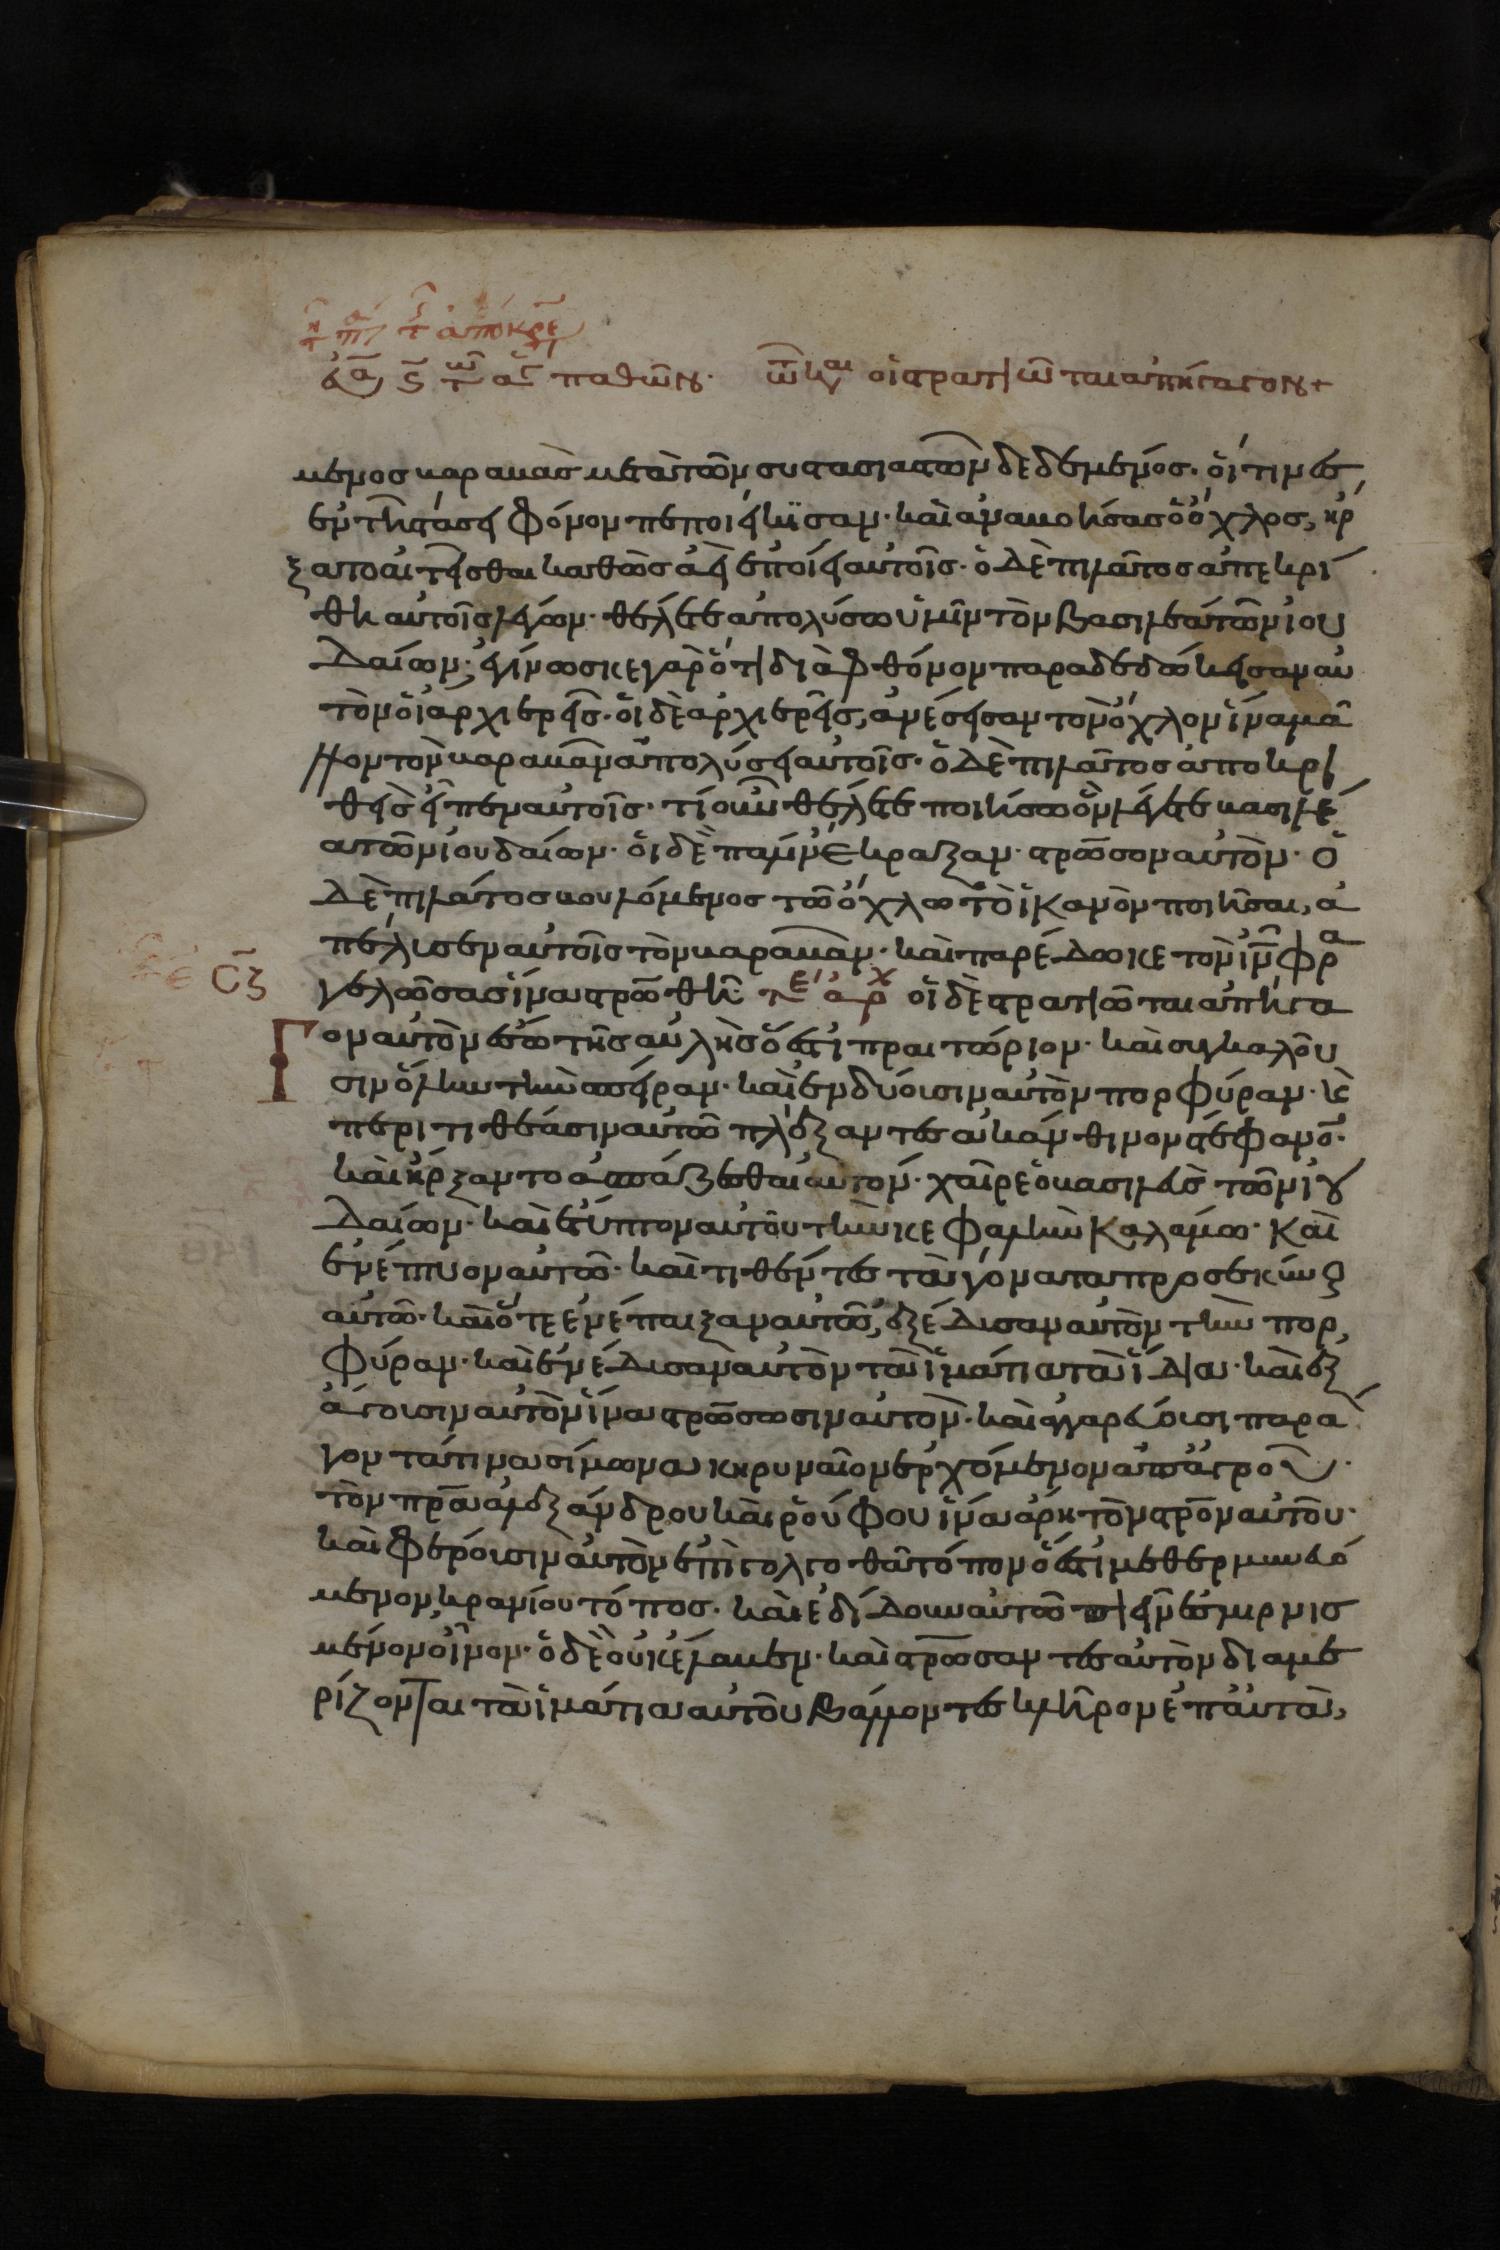 εὐα ς τῶν ἁγ παθῶν. τῶ κω οἱ στρατιῶται ἀπήγαγον +
μενος βαραββας μετὰ τῶν συστασιαστῶν δεδεμένος. οἵτινες
ἐν τῆ στάσει φόνον πεποιήκησαν. καὶ ἀναβοήσας ὁ ὄχλος, ἤρ
ξατο αἰτεῖσθαι καθὼς ἀεὶ ἐποίει αὐτοῖς. ὁ δὲ πιλᾶτος ἀπεκρί
θη αὐτοῖς λέγων. θέλετε ἀπολύσω ὑμῖν τὸν βασιλέα τῶν ἰου
δαίων. ἐγίνωσκε γὰρ ὅτι διὰ φθόνον παραδεδώκεισαν αὐ
τὸν οἱ ἀρχιερεῖς. οἱ δὲ ἀρχιερεῖς, ἀνέσεισαν τὸν ὄχλον ἵνα μᾶ
λλον τὸν βαραββᾶν ἀπολύσει αὐτοῖς. ὁ δὲ πιλᾶτος ἀποκρι
θεὶς εἶπεν αὐτοῖς. τί οὖν θέλετε ποιήσω ὃν λέγετε βασιλέ
α τῶν ἰουδαίων. οἱ δὲ πάλιν ἔκραξαν. στρωσον αὐτόν. ὁ
δὲ πιλάτος βουλόμενος τῶ ὄχλω τὸ ἱκανὸν ποιῆσαι, ἀ
πέλυσεν αὐτοῖς τὸν βαραββᾶν. καὶ παρέδωκε τὸν ιν φρα
γελώσας ἵνα στρωθῆ τε αρχ οἱ δὲ στρατιῶται ἀπήγα
ον αὐτὸν ἔσω τῆς αὐλῆς ὅ ἐστι πραιτώριον. καὶ συγκαλοῦ
σιν ὅλην τὴν σπεῖραν. καὶ ἐνδύουσιν αὐτὸν πορφύραν. κὲ
περιτιθέασιν αὐτῶ πλέξαντες ἀκάνθινον στέφανον.
καὶ ἤρξαντο ἀσπάζεσθαι αὐτόν. χαῖρε ὁ βασιλεὺς τῶν ἰου
δαίων. καὶ ἔτυπτον αὐτοῦ τὴν κεφαλὴν καλάμω. καὶ
ἐνέπτυον αὐτῶ. καὶ τιθέντες τὰ γόνατα προσεκύνουν
αὐτῶ. καὶ ὅτε ἐνέπαιξαν αὐτῶ, ἐξέδυσαν αὐτὸν τὴν πορ
φύραν. καὶ ἐνέδυσαν αὐτὸν τὰ ἱμάτια τὰ ἴδια. καὶ ἐξ
άγουσιν αὐτὸν ἵνα στρώσωσιν αὐτόν. καὶ ἀγγαρεύουσι παρά
γοντά τινα σίμωνα κηρυναῖον ἐρχόμενον ἀπ' ἀγροῦ.
τὸν πρα ἀλεξάνδρου καὶ ῥούφου ἵνα ἄρη τὸν στρον αὐτοῦ.
καὶ φέρουσιν αὐτὸν ἐπὶ γολγοθᾶ τόπον ὅ ἐστι μεθερμηνευό
μενον κρανίου τόπος. καὶ ἐδίδουν αὐτῶ πιεῖν ἐσμυρνις
μένον οἶνον. ὁ δὲ οὐκ ἔλαβεν. καὶ στρωσαντες αὐτὸν διαμε
ρίζονται τὰ ἱμάτια αὐτοῦ βάλλοντες κλῆρον ἐπ' αὐτὰ,